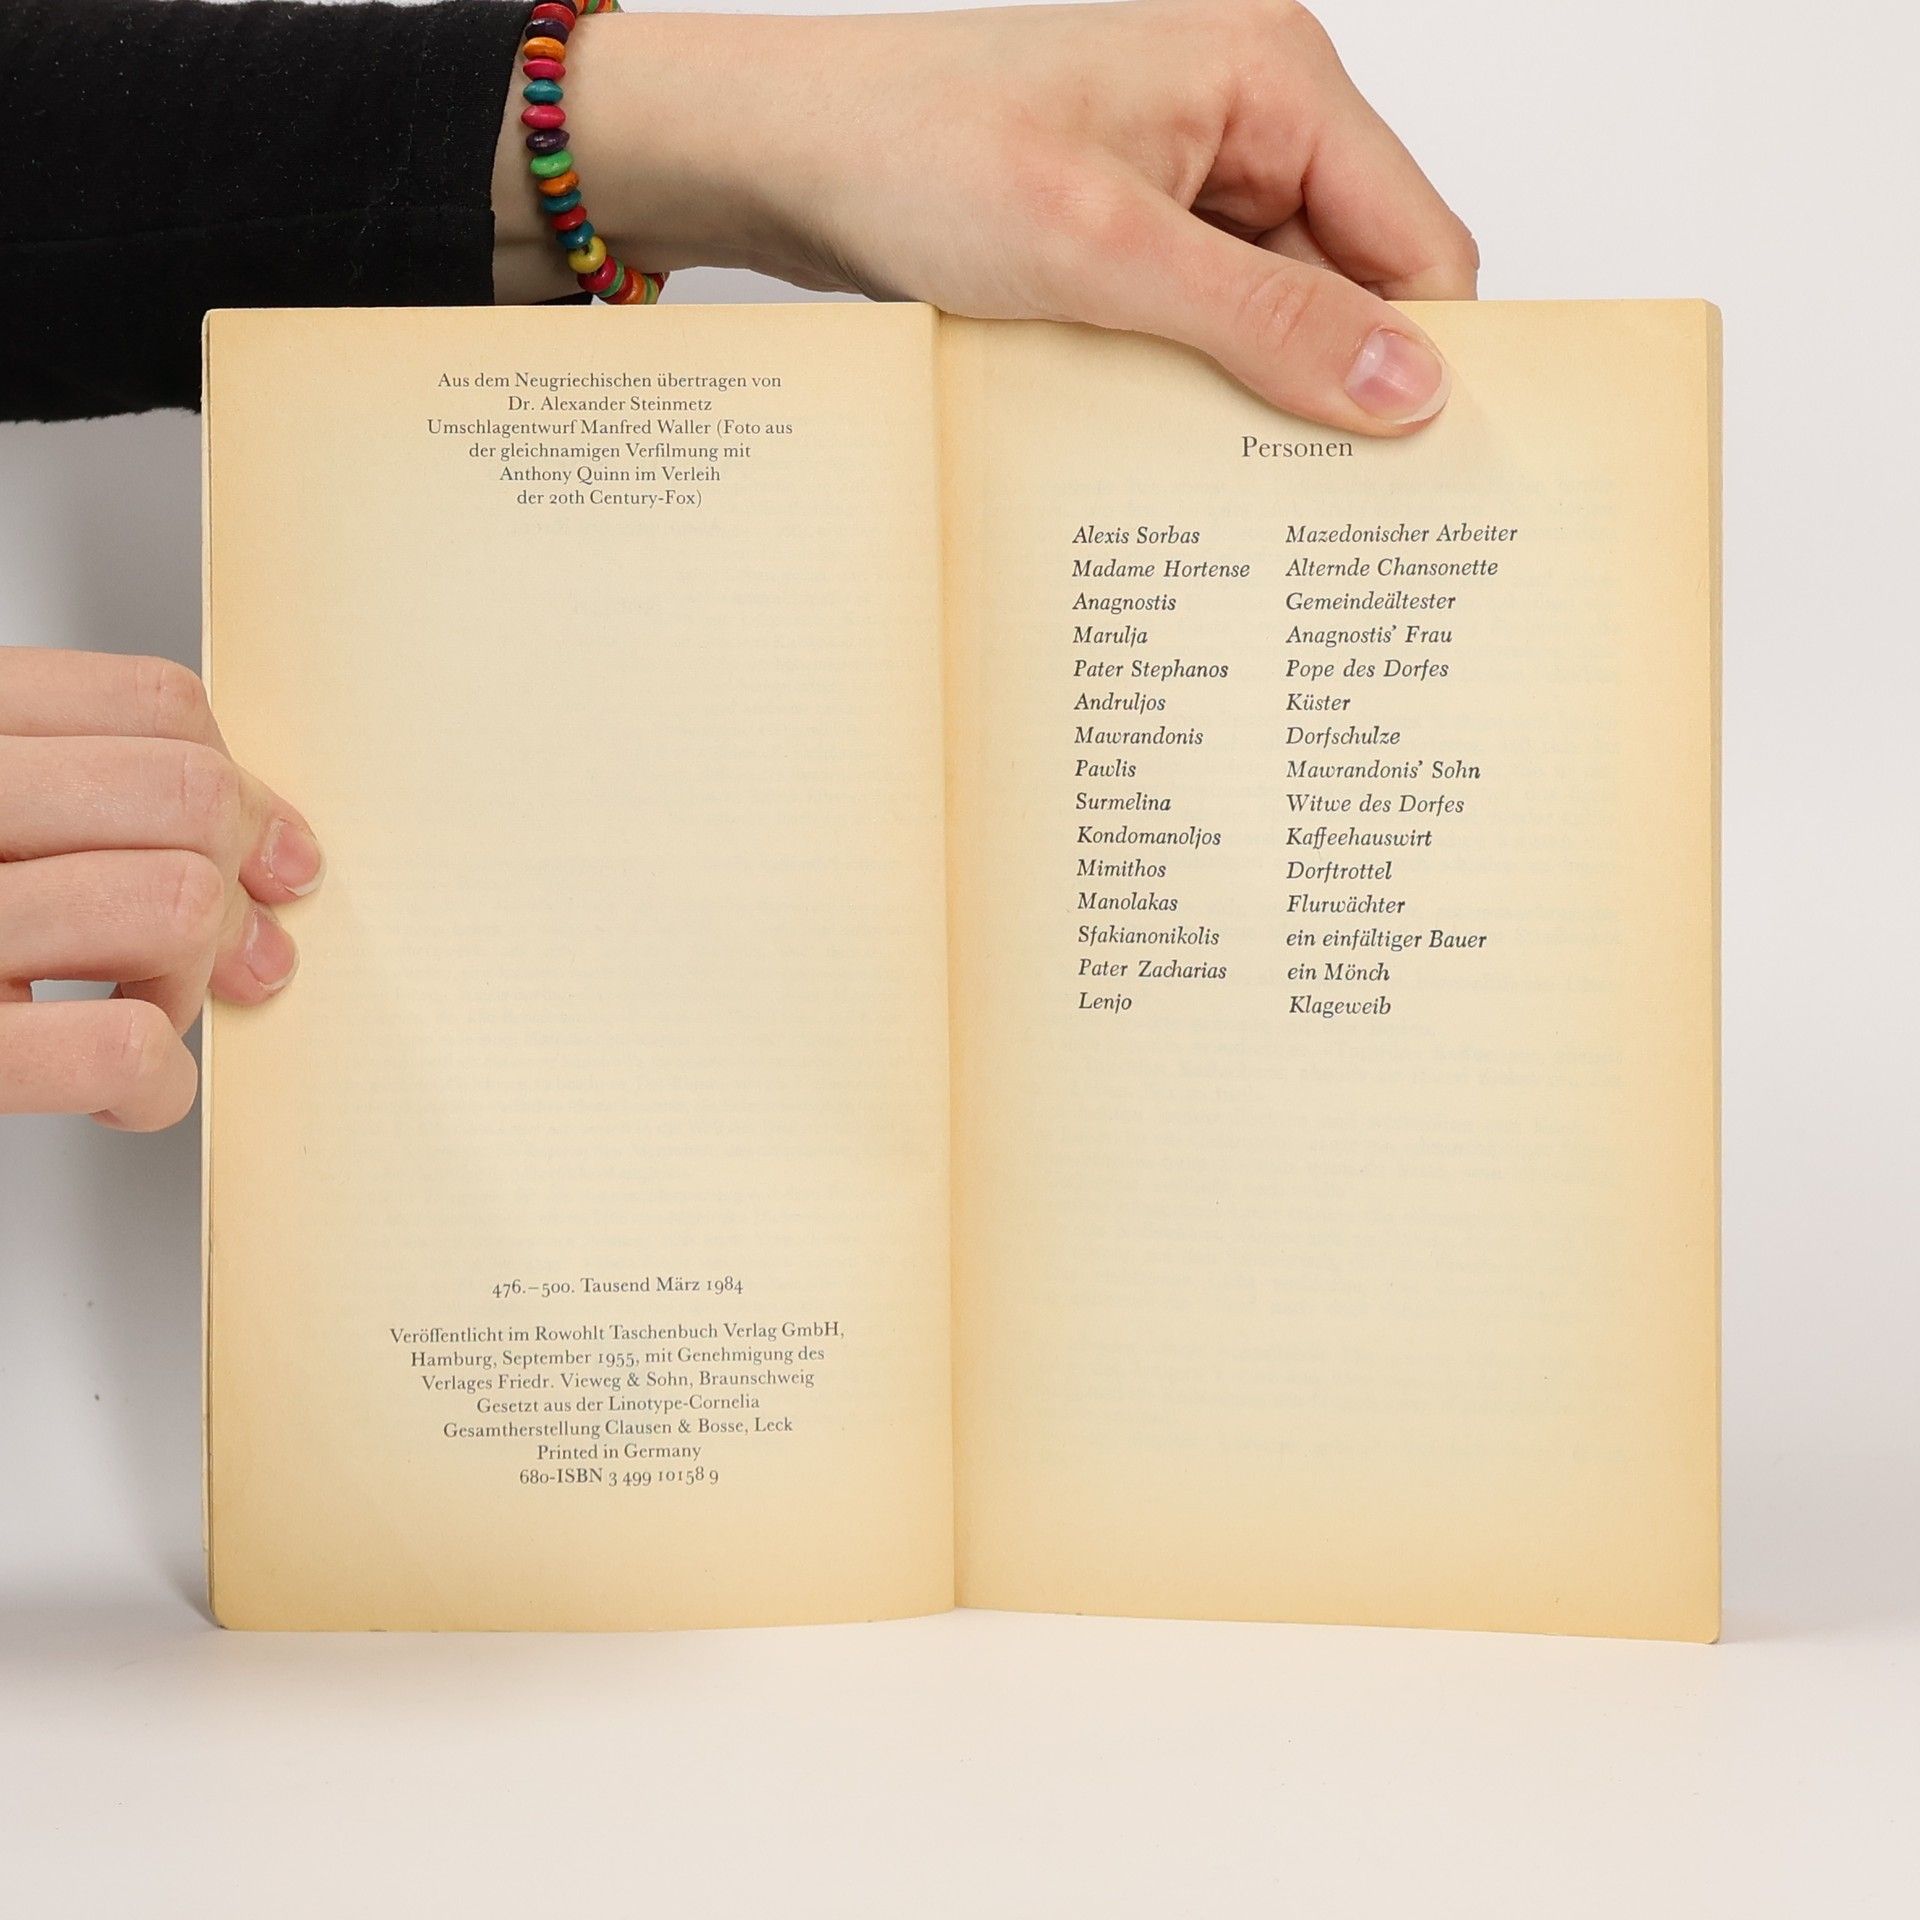 Aus dem Neugriechischen übertragen von
Dr. Alexander Steinmetz
Umschlagentwurf Manfred Waller (Foto aus
der gleichnamigen Verfilmung mit
Anthony Quinn im Verleih
der 20th Century-Fox)
476.–500. Tausend März 1984
Veröffentlicht im Rowohlt Taschenbuch Verlag GmbH,
Hamburg, September 1955, mit Genehmigung des
Verlages Friedr. Vieweg & Sohn, Braunschweig
Gesetzt aus der Linotype-Cornelia
Gesamtherstellung Clausen & Bosse, Leck
Printed in Germany
680-ISBN 3 499 10158 9
Personen
Alexis Sorbas Mazedonischer Arbeiter
Madame Hortense Alternde Chansonette
Anagnostis Gemeindeältester
Marulja Anagnostis’ Frau
Pater Stephanos Pope des Dorfes
Andruljos Küster
Mawrandonis Dorfschulze
Pawlis Mawrandonis’ Sohn
Surmelina Witwe des Dorfes
Kondomanoljos Kaffeehauswirt
Mimithos Dorftrottel
Manolakas Flurwächter
Sfakianonikolis ein einfältiger Bauer
Pater Zacharias ein Mönch
Lenjo Klageweib